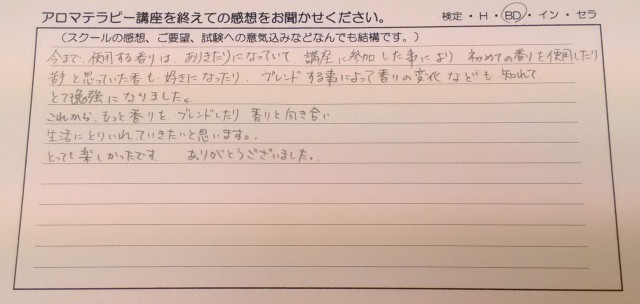 アロマテラピー講座を終えての感想をお聞かせください。 検定・H・BD・イン・セラ
（スクールの感想、ご要望、試験への意気込みなどなんでも結構です。）
今まで、使用する香りは、ありきたりになっていて、講座に参加した事により 初めての香りを使用したり
苦手と思っていた香も、好きになったり、ブレンドする事によって香りの変化なども知れて
とても勉強になりました。
これから、もっと香りを、ブレンドしたり 香りと向き合い
生活にとりいれていきたいと思います。
とっても楽しかったです ありがとうございました。